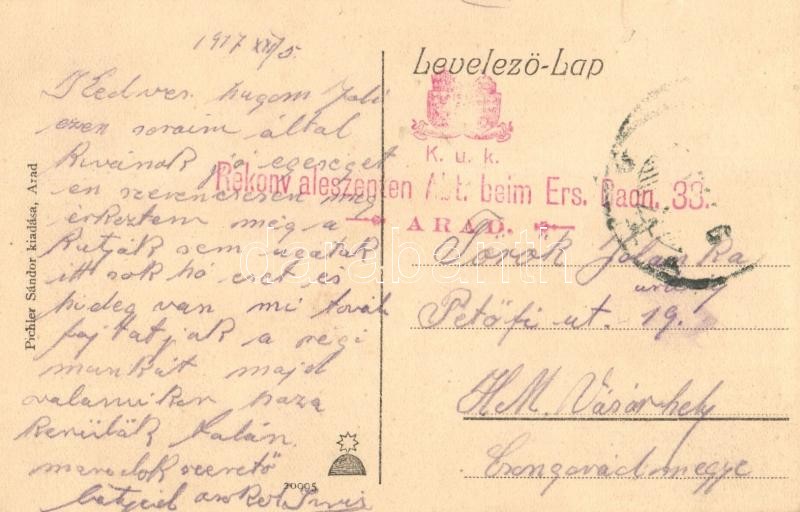 1917 XII/5.
Kedves hugom Joli
ezen soraim által
kivánok jó egeséget
en szerencsesen meg
érkeztem még a
kutják sem ugatak
itt sok hó eset és
hideg van mi továb
fojtatjuk a régi
munkát majd
valamiker haza
kerülök talán.
maradok szerető
Pichler Sándor kiadása, Arad
20005
Levelező-Lap
K. u. k.
Rekonvaleszenten Abt. beim Ers. Baon. 33.
ARAD.
Török Jolánka
Petőfi ut. 19.
H.M. Vásárhely
Csongrádmegye
darabanth